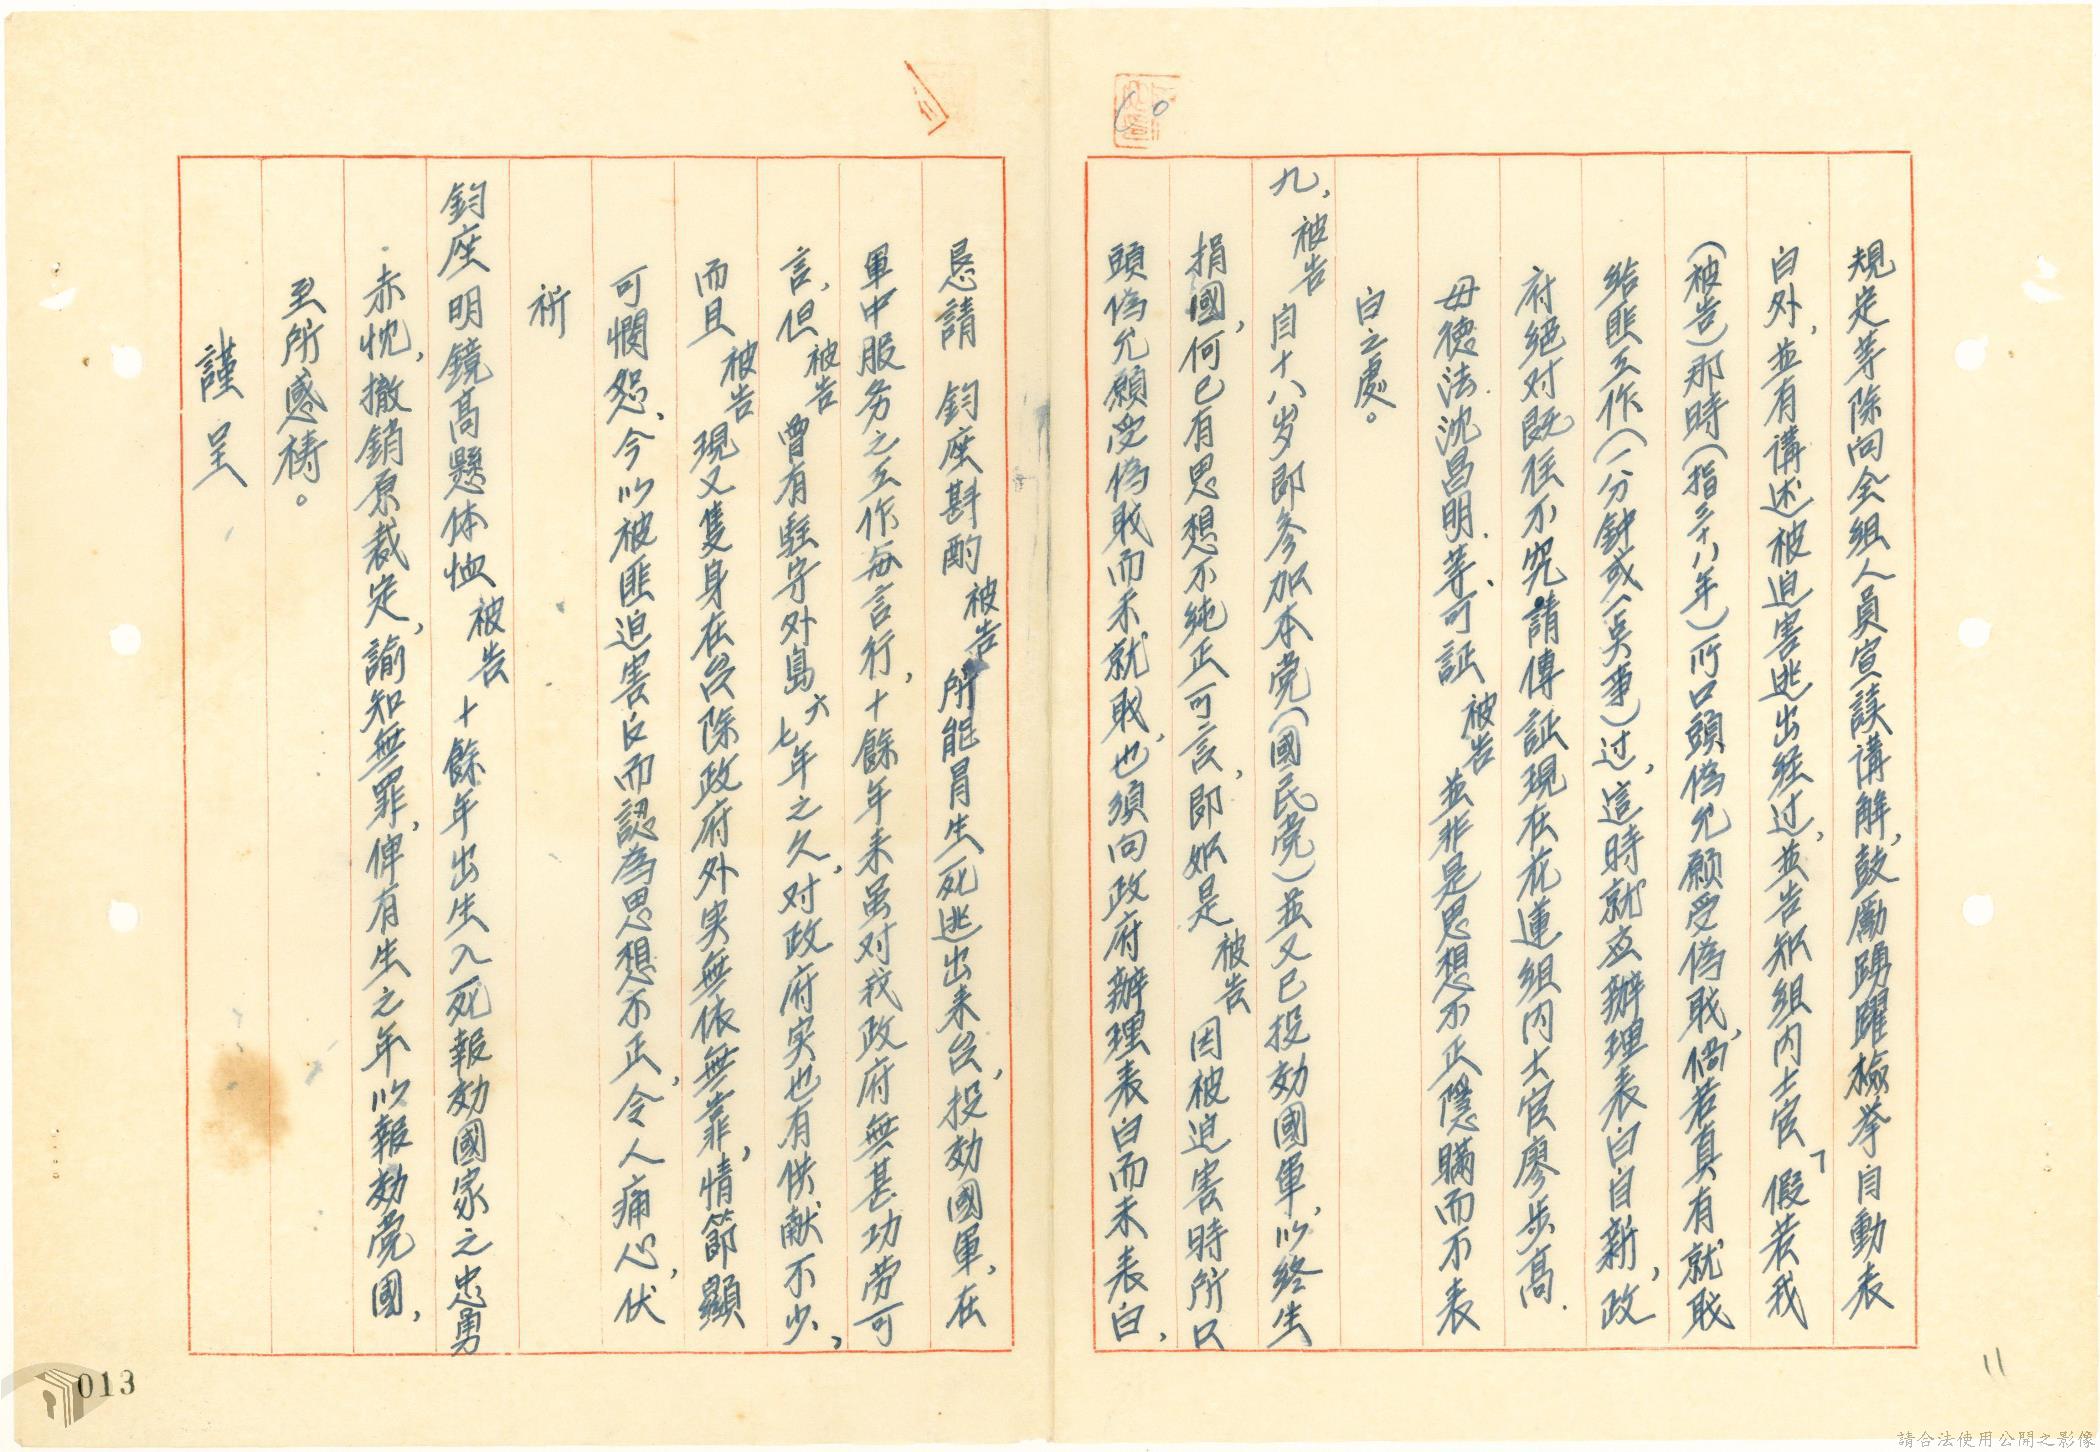 規定等除向全組人員宣讀講解,鼓勵踴躍檢挙自動表
白外,並有講述被迫害逃出経过,並告知組内士官「假若我
(被告)那時(指三十八年)所口頭偽允願受偽戝,倘若真有就戝
給匪工作(一分鈡或一吴事)过,這時就应辦理表白自新,政
府絕对既往不究請傳証現在花蓮組内士官廖步高.
毋德法.沈昌明.等、可証被告並非是思想不正隱瞞而不表
白之處。
九,被告自十八岁即参加本党(國民党)並又已投効國軍,以終生
捐國,何已有思想不純正可言,即如是被告因被迫害時所口
頭偽允願受偽戝而未就戝,也須向政府辦理表白而未表白,
恳請 鈞座斟酌被告所能冐生死逃出来台,投効國軍,在
軍中服务之工作每言行,十餘年来虽对我政府無甚功劳可
言,但被告曾有駐守外島六七年之久,对政府実也有供献不少,
而且被告現又隻身在台除政府外実無依無靠,情節顯
可憫怨、今以被匪迫害反而認為思想不正,令人痛心,伏
祈
鈞座明鏡高懸体恤被告十餘年出生入死報効國家之忠勇
赤忱,撤銷原裁定,諭知無罪,俾有生之年以報効党國,
至所感祷。
謹呈
11
013
請合法使用公開之影像